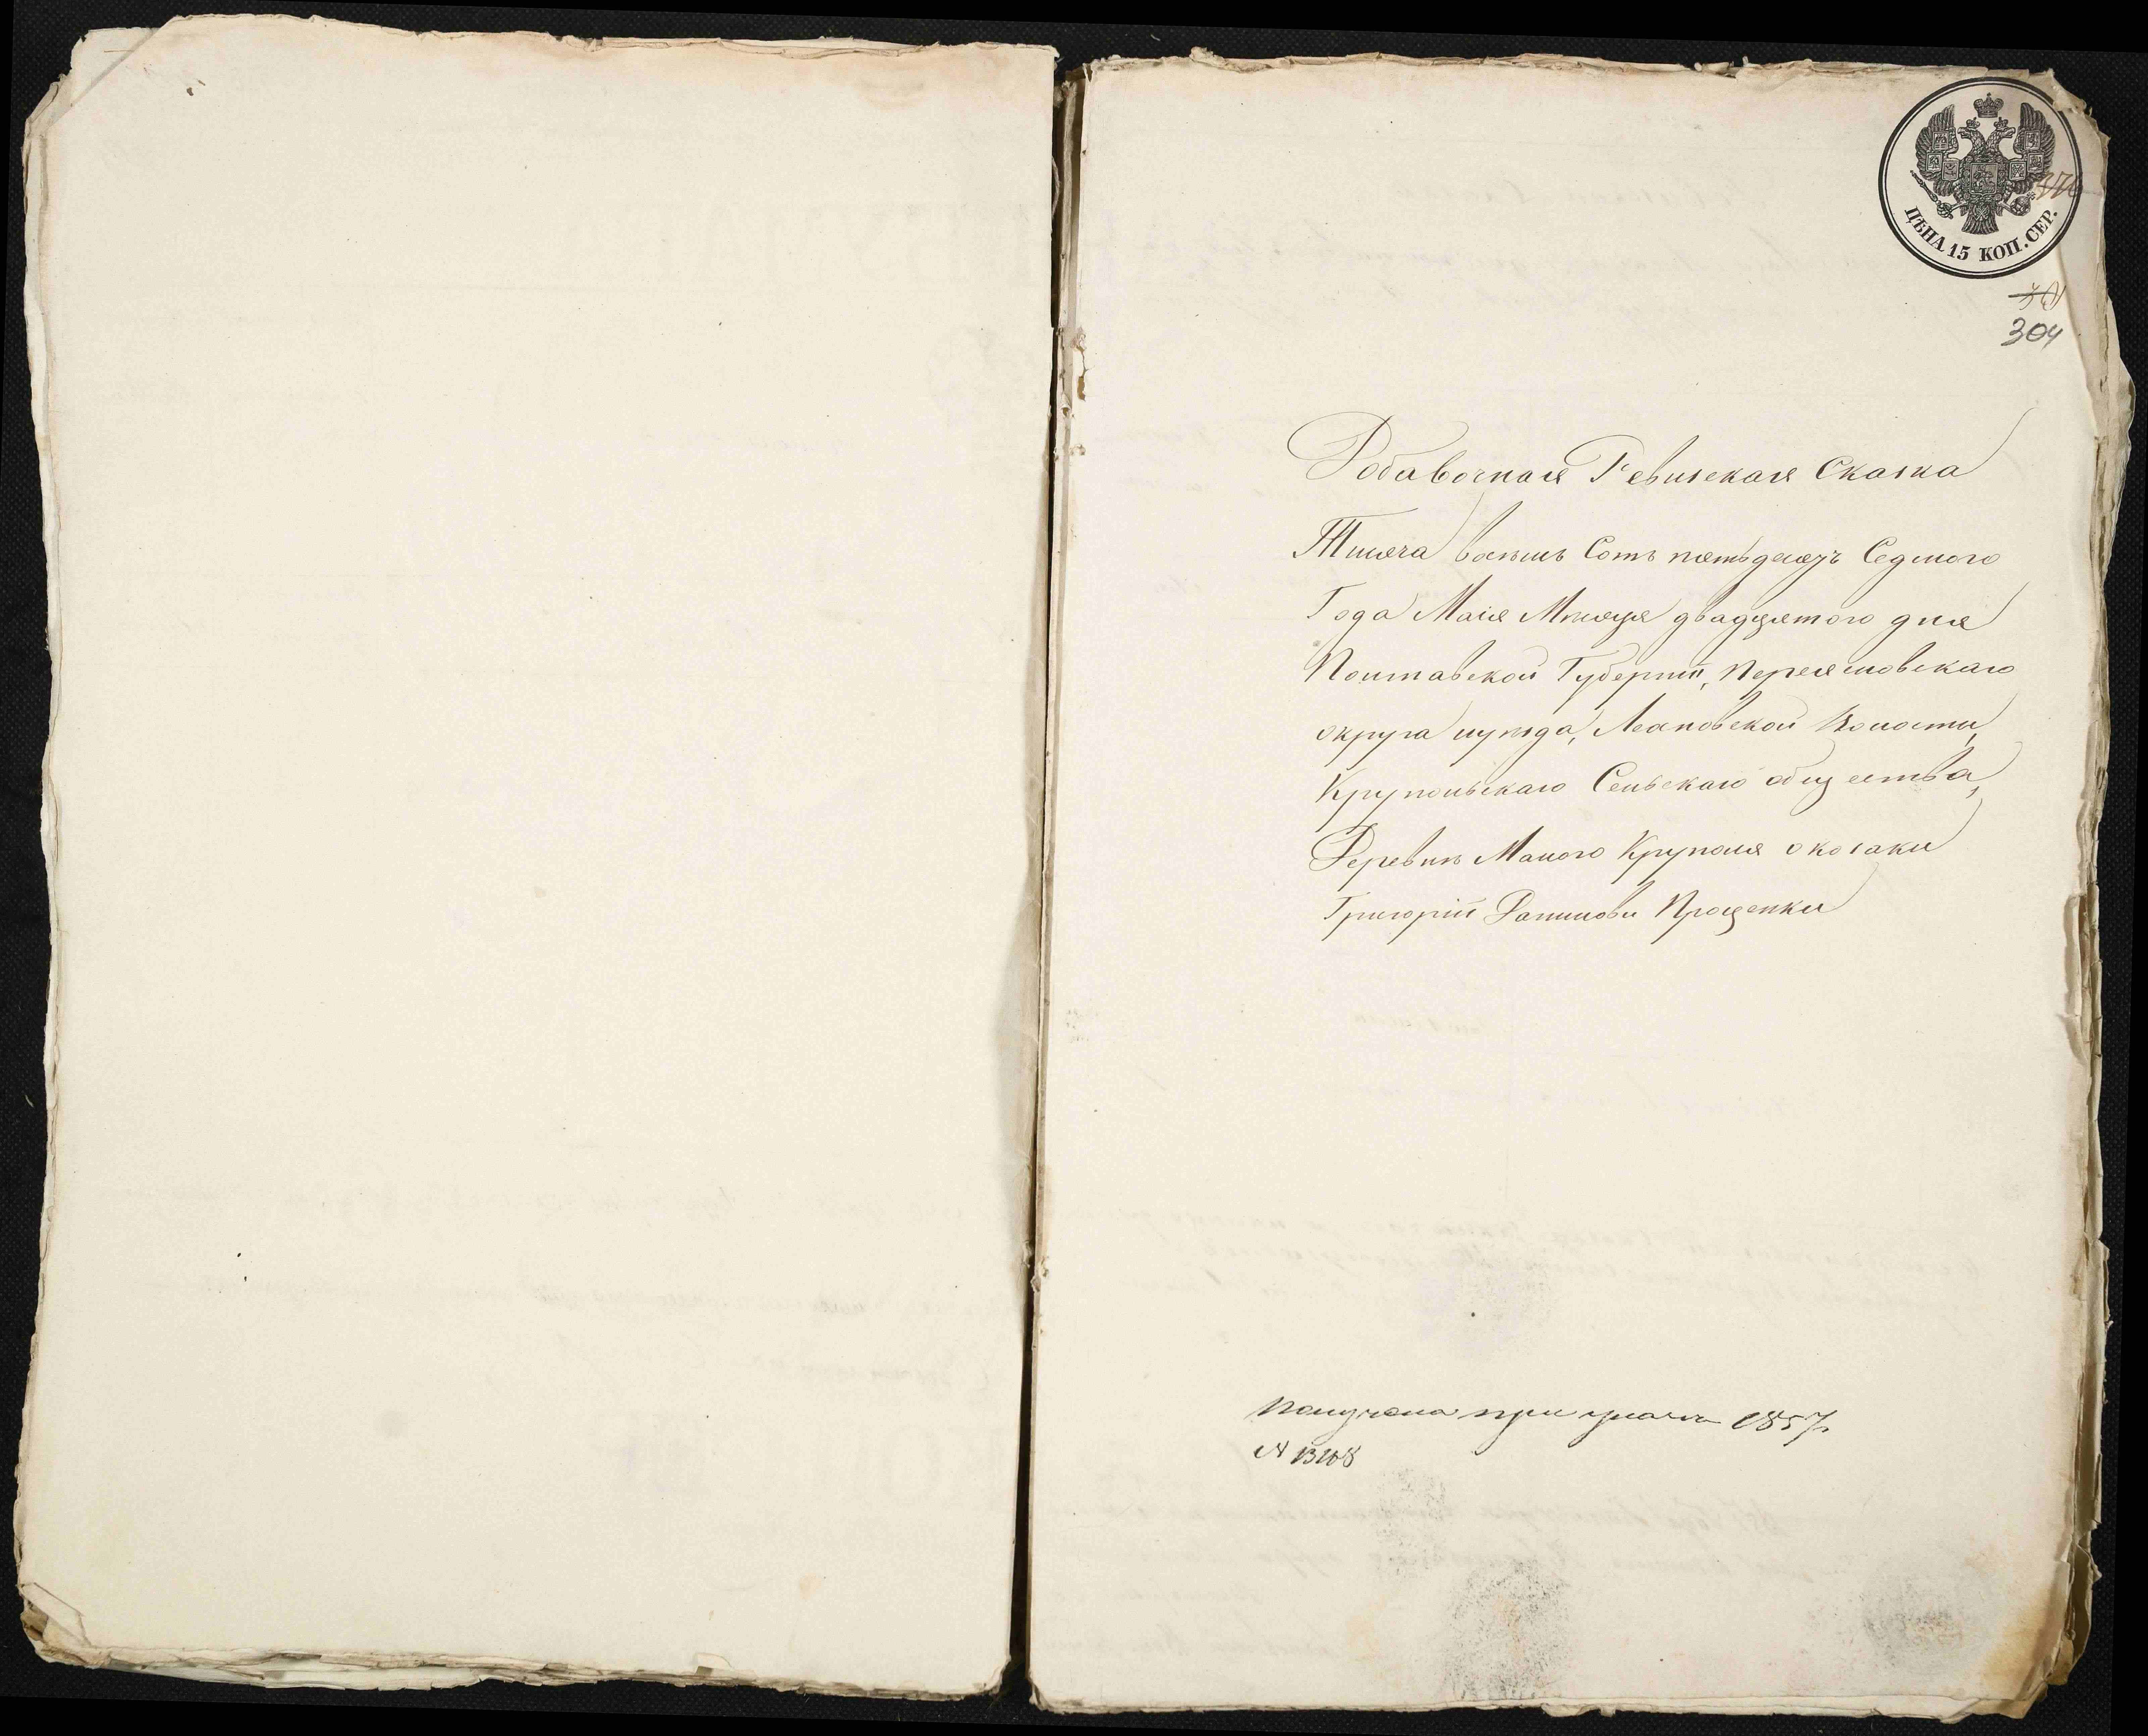 ЦѢНА 15 КОП. СЕР.
304
Добавочная Ревизская Сказка
Тысяча восемь Сотъ пятьдесятъ Седмого
Года Маія Мѣсяца двадцятого дня
Полтавской Губерніи, Переясловскаго
округа и уѣзда, Леляковской Волости,
Крупольскаго Сельскаго общества,
Деревни Малого Круполя о козаки
Григоріи Даниловы Проценки
Получена при 1857 г.
№